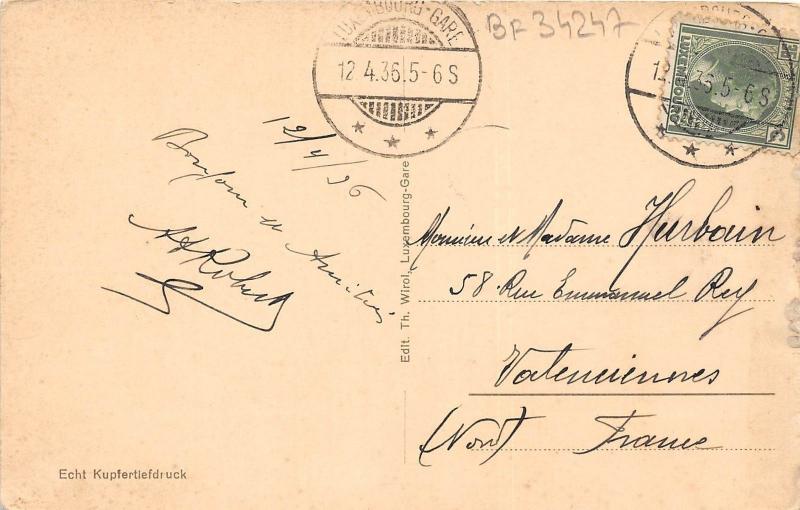 LUXEMBOURG-GARE
12.4.36.5-6 S
BF 34247
LUXEMBOURG
12/4/36
Bonjour et Amitiés
A Robert
Edit. Th. Wirol, Luxembourg-Gare
Monsieur et Madame Hurbain
58 Rue Emmanuel Rey
Valenciennes
(Nord) France
Echt Kupfertiefdruck